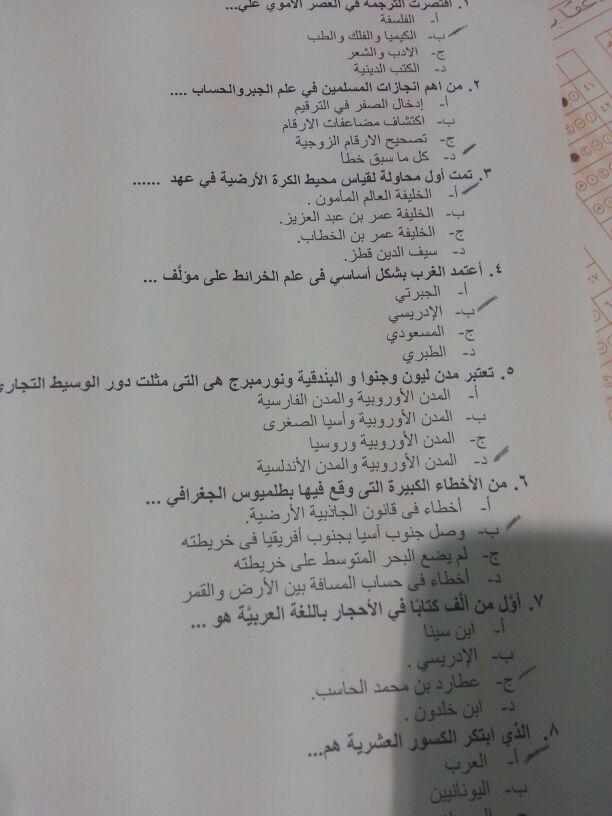 ١. اقتصرت الترجمة في العصر الأموي علي...
أ- الفلسفة
ب- الكيميا والفلك والطب
ج- الادب والشعر
د- الكتب الدينية
٢. من اهم انجازات المسلمين في علم الجبروالحساب ....
أ- إدخال الصفر في الترقيم
ب- اكتشاف مضاعفات الارقام
ج- تصحيح الارقام الزوجية
د- كل ما سبق خطأ
٣. تمت أول محاولة لقياس محيط الكرة الأرضية في عهد ......
أ- الخليفة العالم المأمون .
ب- الخليفة عمر بن عبد العزيز.
ج- الخليفة عمر بن الخطاب.
د- سيف الدين قطز.
٤. أعتمد الغرب بشكل أساسي فى علم الخرائط على مؤلَّف ...
أ- الجبرتي
ب- الإدريسي
ج- المسعودي
د- الطبري
٥. تعتبر مدن ليون وجنوا و البندقية ونورمبرج هى التى مثلت دور الوسيط التجاري
أ- المدن الأوروبية والمدن الفارسية
ب- المدن الأوروبية وأسيا الصغرى
ج- المدن الأوروبية وروسيا
د- المدن الأوروبية والمدن الأندلسية
٦. من الأخطاء الكبيرة التى وقع فيها بطلميوس الجغرافي ...
أ- أخطاء فى قانون الجاذبية الأرضية.
ب- وصل جنوب آسيا بجنوب أفريقيا فى خريطته
ج- لم يضع البحر المتوسط على خريطته
د- أخطاء فى حساب المسافة بين الأرض والقمر
٧. أوَّل من ألَّف كتابًا في الأحجار باللغة العربيَّة هو ...
أ- ابن سينا
ب- الإدريسي .
ج- عطارد بن محمد الحاسب.
د- ابن خلدون .
٨. الذي ابتكر الكسور العشرية هم...
أ- العرب
ب- اليونانيين